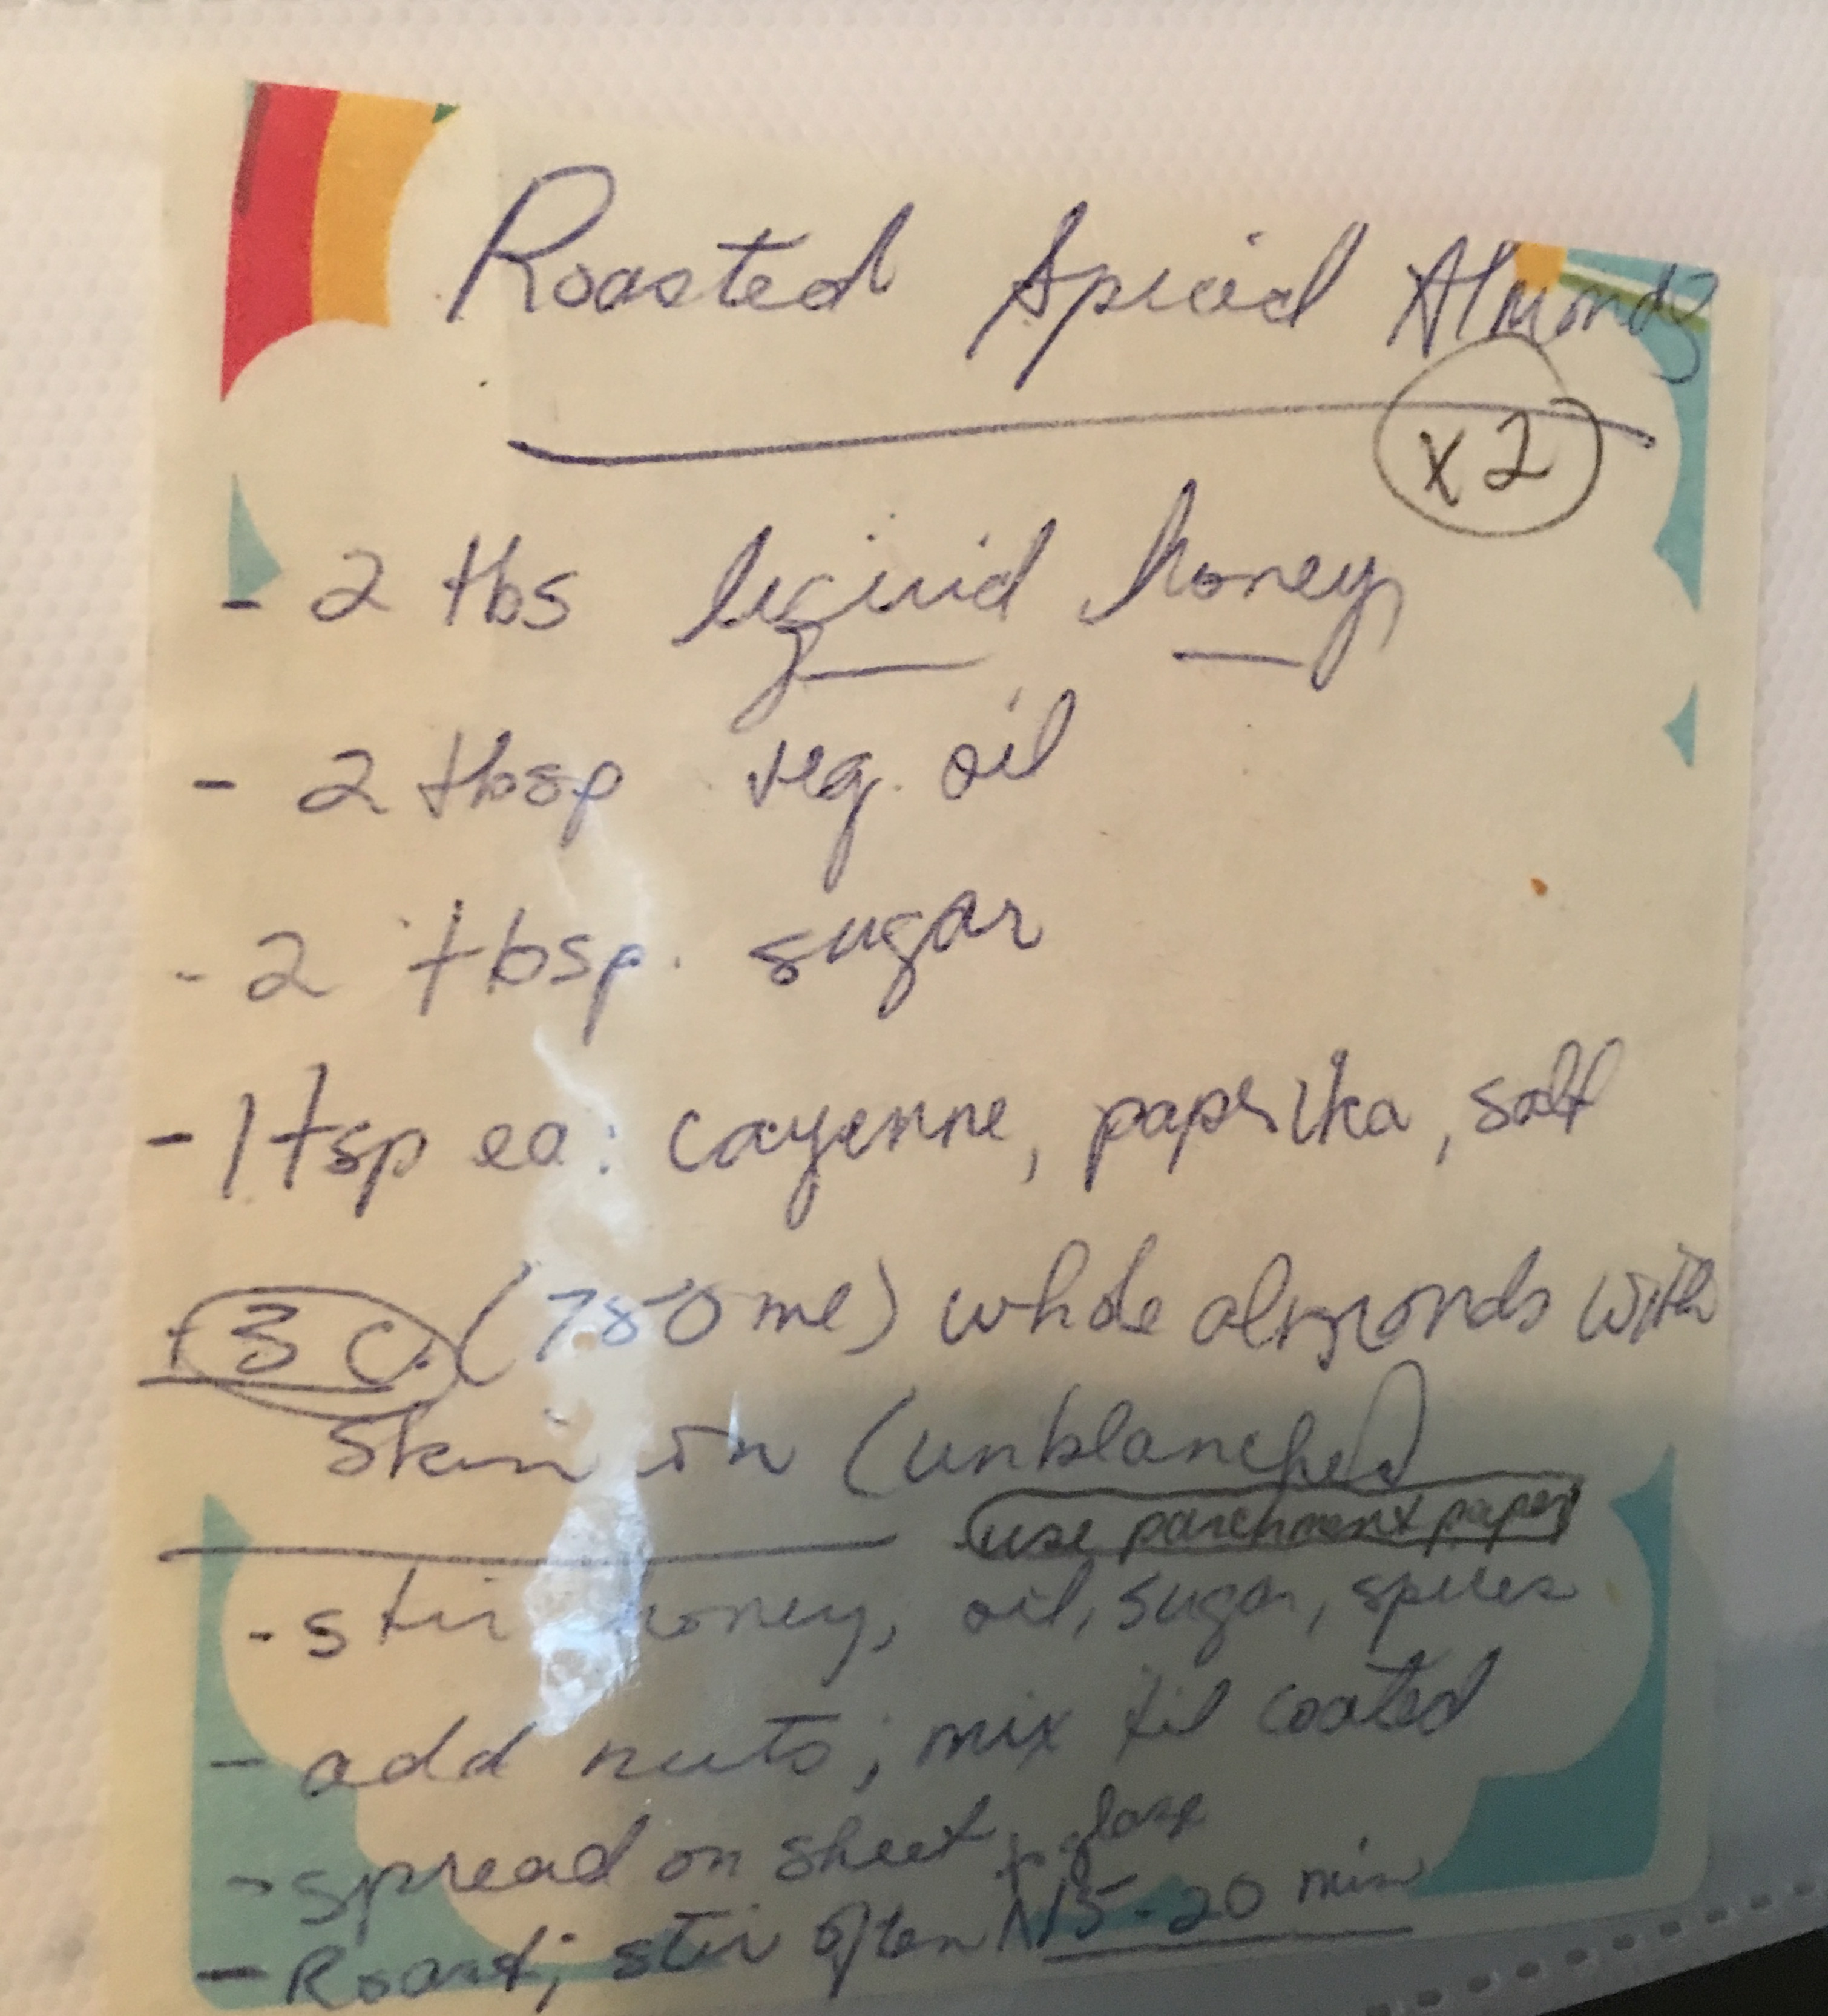 Roasted Spiced Almonds
x2
- 2 tbs liquid honey
- 2 tbsp veg. oil
- 2 tbsp. sugar
- 1 tsp ea: cayenne, paprika, salt
- 3 c. (750 ml) whole almonds with
skin on (unblanched)
use parchment paper
- stir honey, oil, sugar, spices
- add nuts; mix til coated
- spread on sheet
to glaze
- Roast; stir often 15-20 min